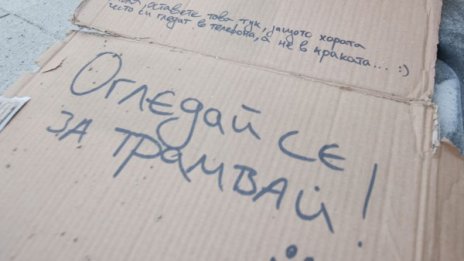 оставете това тук, защото хората
често си гледат в телефона, а не в краката... :)
Огледай се
за трамвай!